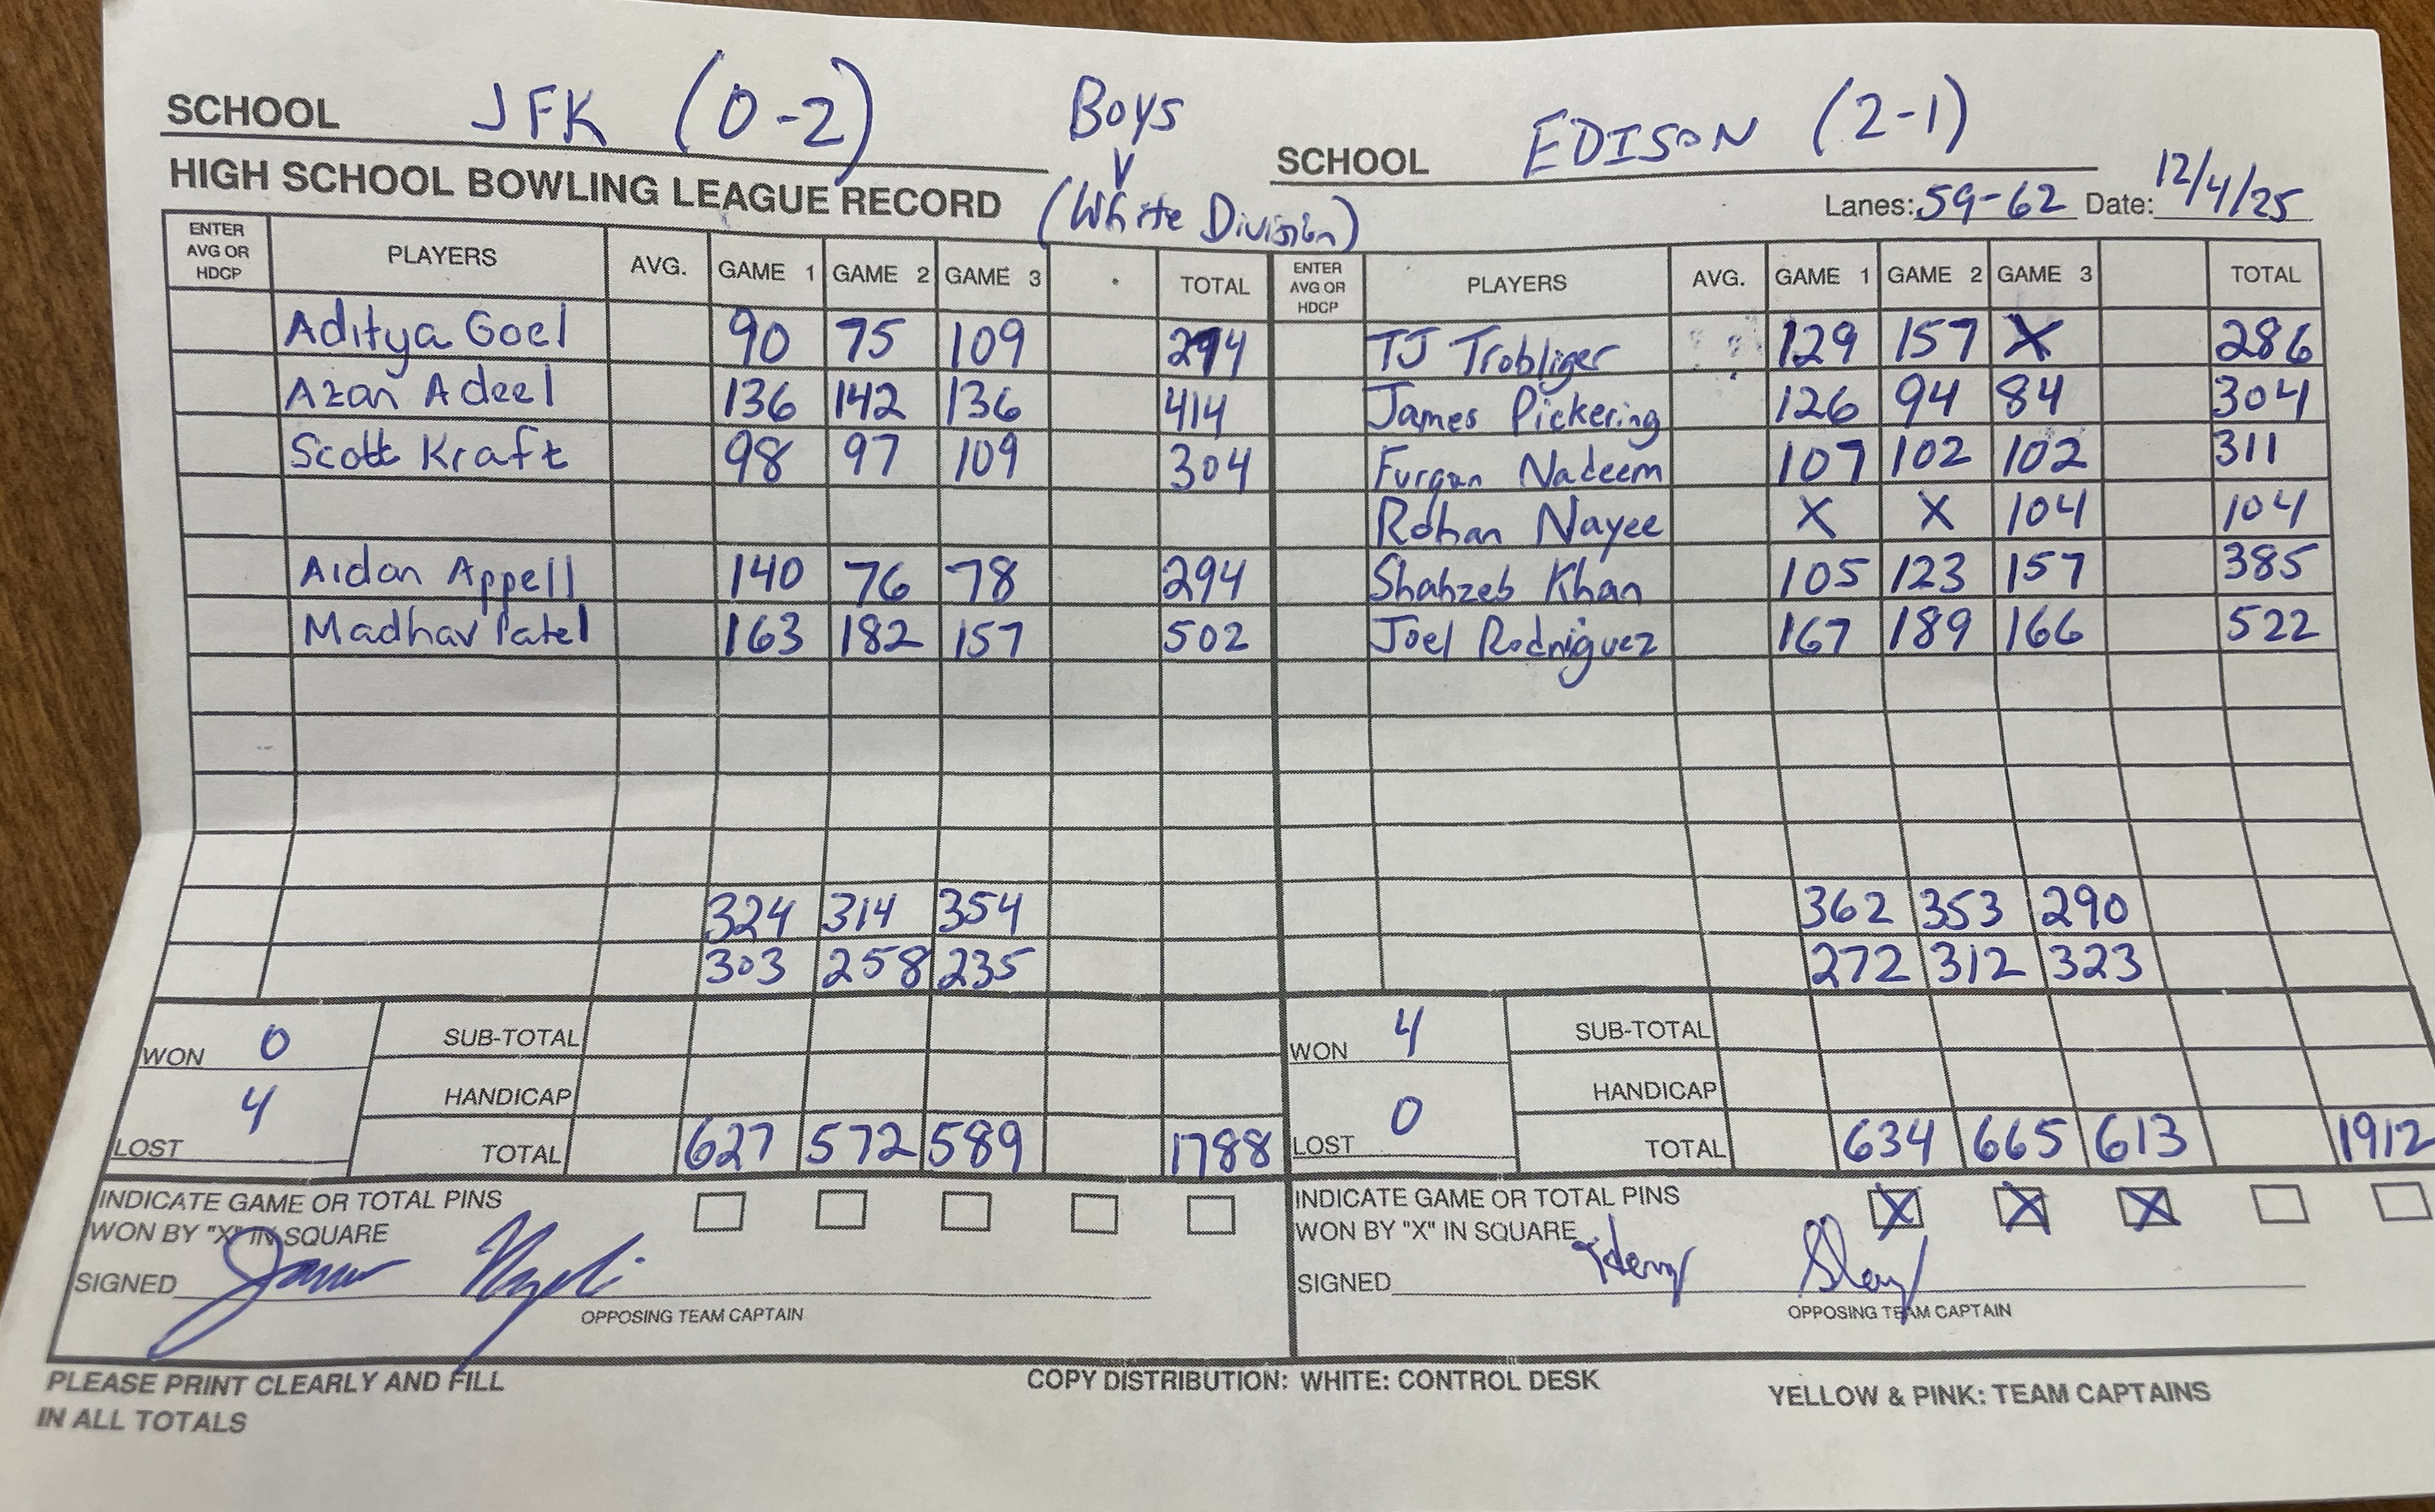 SCHOOL JFK (0-2) Boys SCHOOL EDISON (2-1)
HIGH SCHOOL BOWLING LEAGUE RECORD (White Division) Lanes: 59-62 Date: 12/4/25
ENTER AVG OR HDCP PLAYERS AVG. GAME 1 GAME 2 GAME 3 TOTAL ENTER AVG OR HDCP PLAYERS AVG. GAME 1 GAME 2 GAME 3 TOTAL
Aditya Goel 90 75 109 274 TJ Trobliger 129 157 X 286
Azan Adeel 136 142 136 414 James Pickering 126 94 84 304
Scott Kraft 98 97 109 304 Furqan Nadeem 107 102 102 311
Rohan Nayee X X 104 104
Aidan Appell 140 76 78 294 Shahzeb Khan 105 123 157 385
Madhav Patel 163 182 157 502 Joel Rodriguez 167 189 166 522
324 314 354 362 353 290
303 258 235 272 312 323
WON 0 SUB-TOTAL WON 4 SUB-TOTAL
HANDICAP HANDICAP
LOST 4 TOTAL 627 572 589 1788 LOST 0 TOTAL 634 665 613 1912
INDICATE GAME OR TOTAL PINS INDICATE GAME OR TOTAL PINS X X X
WON BY "X" IN SQUARE WON BY "X" IN SQUARE
SIGNED SIGNED
OPPOSING TEAM CAPTAIN OPPOSING TEAM CAPTAIN
PLEASE PRINT CLEARLY AND FILL COPY DISTRIBUTION: WHITE: CONTROL DESK YELLOW & PINK: TEAM CAPTAINS
IN ALL TOTALS